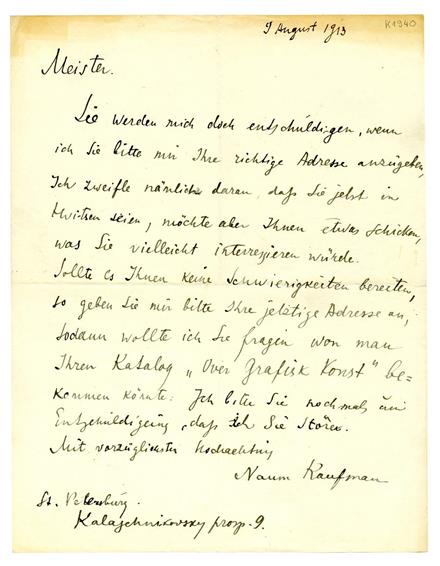 9 August 1913
K1940
Meister.
Sie werden mich doch entschuldigen, wenn
ich Sie bitte mir Ihre richtige Adresse anzugeben,
Ich zweifle nämlich daran, daß Sie jetzt in
Hvitsten seien, möchte aber Ihnen etwas schicken,
was Sie vielleicht interessieren würde.
Sollte es Ihnen keine Schwierigkeiten bereiten,
so geben Sie mir bitte Ihre jetztige Adresse an,
Sodann wollte ich Sie fragen won man
Ihren Katalog „Over Grafisk Konst" be=
kommen könnte. Ich bitte Sie nochmals um
Entschuldigung, daß ich Sie störe.
Mit vorzüglichster Hochachtung
Naum Kaufman
St. Petersburg.
Kalaschnikowsky prosp. 9.